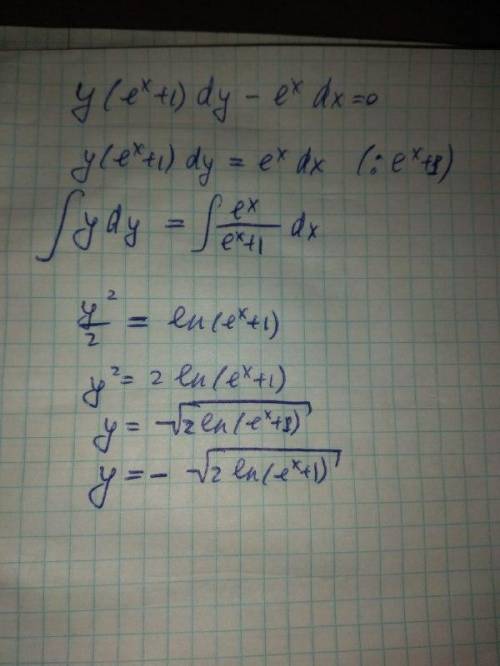 y(eˣ+1) dy - eˣ dx=0
y(eˣ+1) dy = eˣ dx (: eˣ+1)
∫ y dy = ∫ eˣ/(eˣ+1) dx
y²/2 = ln(eˣ+1)
y² = 2 ln(eˣ+1)
y = √(2 ln(eˣ+1))
y = - √(2 ln(eˣ+1))